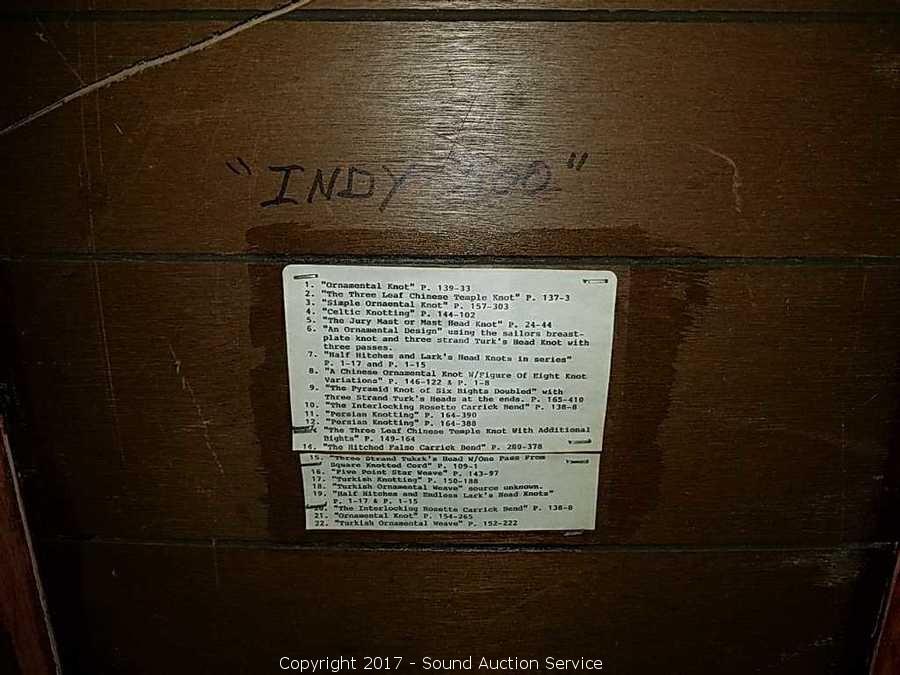 "INDY 500"
1. "Ornamental Knot" P. 139-33
2. "The Three Leaf Chinese Temple Knot" P. 137-3
3. "Simple Ornaental Knot" P. 157-303
4. "Celtic Knotting" P. 144-102
5. "The Jury Mast or Mast Head Knot" P. 24-44
6. "An Ornamental Design" using the sailors breast-
plate knot and three strand Turk's Head Knot with
three passes.
7. "Half Hitches and Lark's Head Knots in series"
P. 1-17 and P. 1-15
8. "A Chinese Ornamental Knot W/Figure Of Eight Knot
Variations" P. 146-122 & P. 1-8
9. "The Pyramid Knot of Six Bights Doubled" with
Three Strand Turk's Heads at the ends. P. 165-410
10. "The Interlocking Rosette Carrick Bend" P. 138-8
11. "Persian Knotting" P. 164-390
12. "Persian Knotting" P. 164-388
"The Three Leaf Chinese Temple Knot With Additional
Bights" P. 149-164
14. "The Hitched False Carrick Bend" P. 280-378
15. "Three Strand Tukrk's Head W/One Pass From
Square Knotted Cord" P. 109-1
16. "Five Point Star Weave" P. 143-97
17. "Turkish Knotting" P. 150-188
18. "Turkish Ornamental Weave" source unknown.
19. "Half Hitches and Endless Lark's Head Knots"
P. 1-17 & P. 1-15
20. "The Interlocking Rosette Carrick Bend" P. 138-8
21. "Ornamental Knot" P. 154-265
22. "Turkish Ornamental Weave" P. 152-222
Copyright 2017 - Sound Auction Service